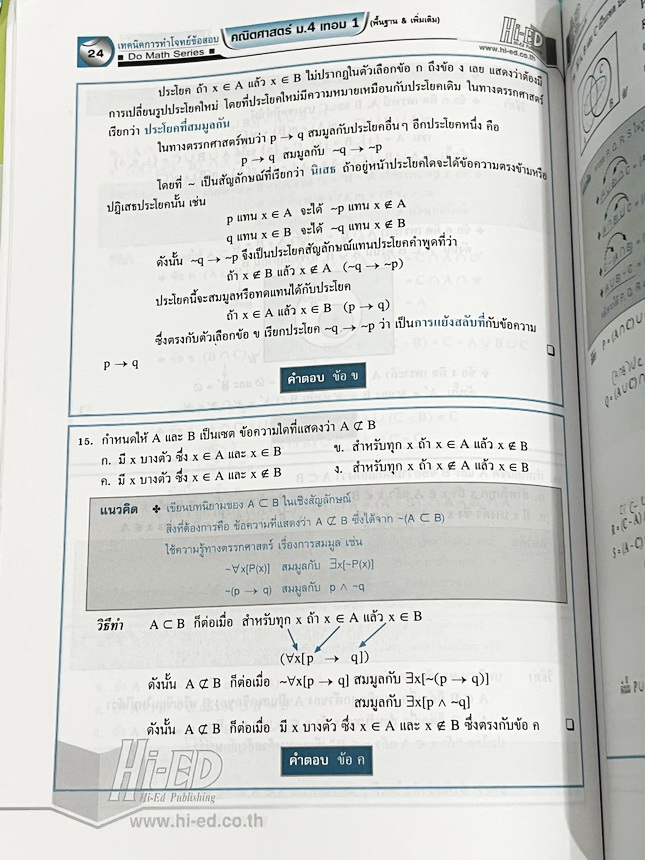 24
เทคนิคการทำโจทย์ข้อสอบ
Do Math Series
คณิตศาสตร์ ม.4 เทอม 1 (พื้นฐาน & เพิ่มเติม)
Hi-ED
www.hi-ed.co.th
ประโยค ถ้า x ∈ A แล้ว x ∈ B ไม่ปรากฏในตัวเลือกข้อ ก ถึงข้อ ง เลย แสดงว่าต้องมี
การเปลี่ยนรูปประโยคใหม่ โดยที่ประโยคใหม่มีความหมายเหมือนกับประโยคเดิม ในทางตรรกศาสตร์
เรียกว่า ประโยคที่สมมูลกัน
ในทางตรรกศาสตร์พบว่า p → q สมมูลกับประโยคอื่นๆ อีกประโยคหนึ่ง คือ
p → q สมมูลกับ ~q → ~p
โดยที่ ~ เป็นสัญลักษณ์ที่เรียกว่า นิเสธ ถ้าอยู่หน้าประโยคใดจะได้ข้อความตรงข้ามหรือ
ปฏิเสธประโยคนั้น เช่น
p แทน x ∈ A จะได้ ~p แทน x ∉ A
q แทน x ∈ B จะได้ ~q แทน x ∉ B
ดังนั้น ~q → ~p จึงเป็นประโยคสัญลักษณ์แทนประโยคคำพูดที่ว่า
ถ้า x ∉ B แล้ว x ∉ A (~q → ~p)
ประโยคนี้จะสมมูลหรือทดแทนได้กับประโยค
ถ้า x ∈ A แล้ว x ∈ B (p → q)
ซึ่งตรงกับตัวเลือกข้อ ข เรียกประโยค ~q → ~p ว่า เป็นการแย้งสลับที่กับข้อความ
p → q
คำตอบ ข้อ ข
15. กำหนดให้ A และ B เป็นเซต ข้อความใดที่แสดงว่า A ⊄ B
ก. มี x บางตัว ซึ่ง x ∈ A และ x ∈ B ข. สำหรับทุก x ถ้า x ∈ A แล้ว x ∉ B
ค. มี x บางตัว ซึ่ง x ∈ A และ x ∉ B ง. สำหรับทุก x ถ้า x ∉ A แล้ว x ∈ B
แนวคิด ❖ เขียนบทนิยามของ A ⊂ B ในเชิงสัญลักษณ์
สิ่งที่ต้องการคือ ข้อความที่แสดงว่า A ⊄ B ซึ่งได้จาก ~(A ⊂ B)
ใช้ความรู้ทางตรรกศาสตร์ เรื่องการสมมูล เช่น
~∀x[P(x)] สมมูลกับ ∃x[~P(x)]
~(p → q) สมมูลกับ p ∧ ~q
วิธีทำ A ⊂ B ก็ต่อเมื่อ สำหรับทุก x ถ้า x ∈ A แล้ว x ∈ B
(∀x[p → q])
ดังนั้น A ⊄ B ก็ต่อเมื่อ ~∀x[p → q] สมมูลกับ ∃x[~(p → q)]
สมมูลกับ ∃x[p ∧ ~q]
ดังนั้น A ⊄ B ก็ต่อเมื่อ มี x บางตัว ซึ่ง x ∈ A และ x ∉ B ซึ่งตรงกับข้อ ค
คำตอบ ข้อ ค
Hi-ED
Hi-Ed Publishing
www.hi-ed.co.th